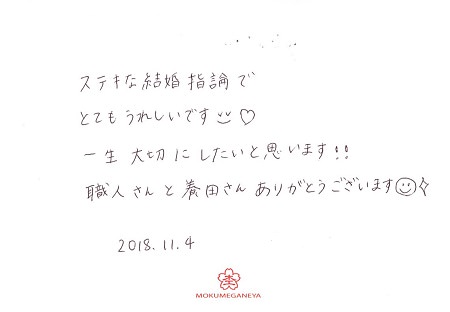 ステキな結婚指論で
とてもうれしいです♡
一生大切にしたいと思います!!
職人さんと養田さんありがとうございます
2018.11.4
MOKUMEGANEYA